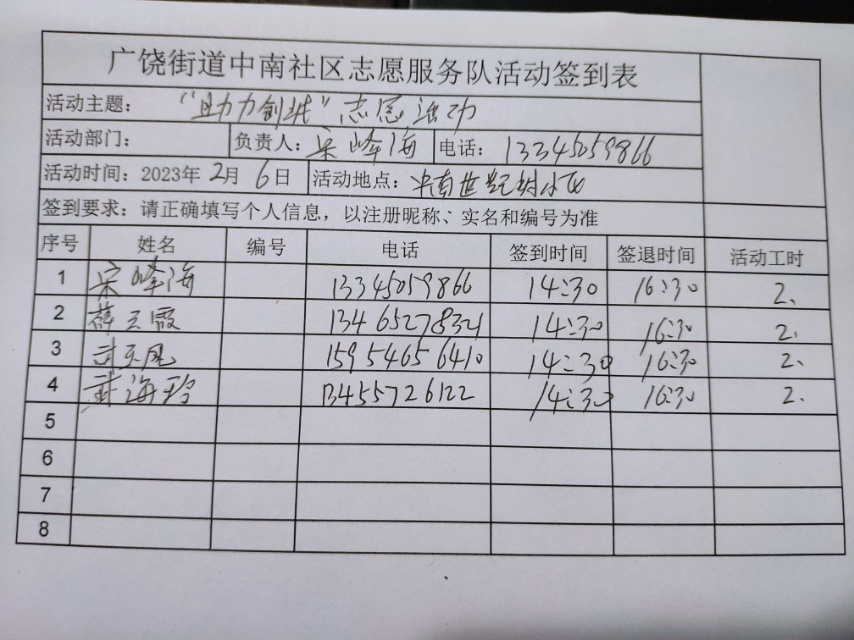 广饶街道中南社区志愿服务队活动签到表
活动主题： “助力创城”志愿活动
活动部门： 负责人：宋峰海 电话：13345059866
活动时间：2023年2月6日 活动地点：中南世纪城小区
签到要求：请正确填写个人信息，以注册昵称、实名和编号为准
序号 姓名 编号 电话 签到时间 签退时间 活动工时
1 宋峰海 13345059866 14:30 16:30 2.
2 薛玉霞 13465278321 14:30 16:30 2.
3 玉凤 15954656410 14:30 16:30 2.
4 武海玲 13455726122 14:30 16:30 2.
5
6
7
8